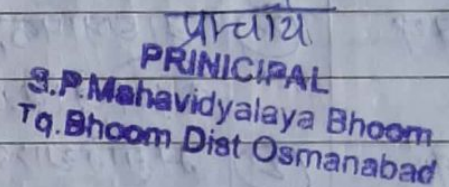 प्राचार्य
PRINICIPAL
S.P.Mahavidyalaya Bhoom
Tq.Bhoom Dist Osmanabad